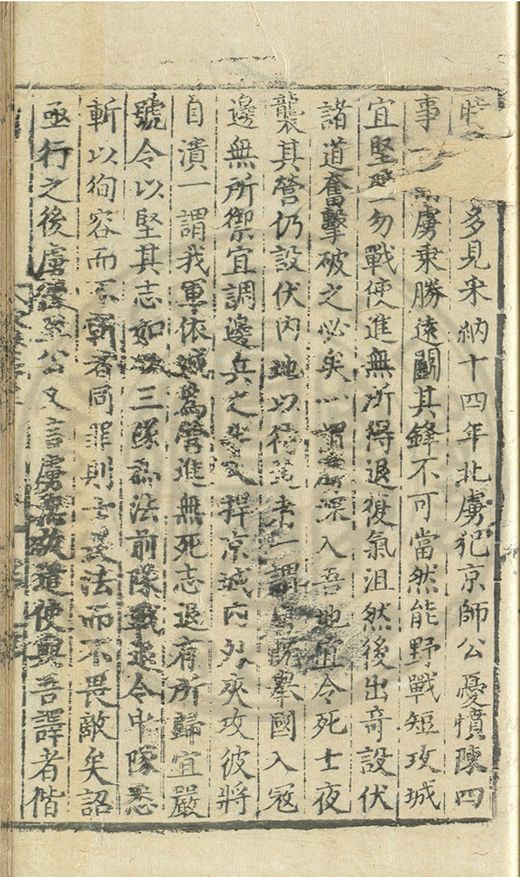 時多見采納十四年北虜犯京師公憂憤陳四
事虜乘勝遠鬭其鋒不可當然能野戰短攻城
宜堅壁勿戰使進無所得退復氣沮然後出奇設伏
諸道奮擊破之必矣一謂虜深入吾地宜令死士夜
襲其營仍設伏內地以待其來一謂虜既舉國入寇
邊無所禦宜調邊兵之半入捍京城內外夾攻彼將
自潰一謂我軍依城為營進無死志退有所歸宜嚴
號令以堅其志如以三隊為法前隊戰退令中隊悉
斬以徇容而不斬者同罪則士畏法而不畏敵矣詔
亟行之後虜公又言虜無故遣使與吾譯者偕